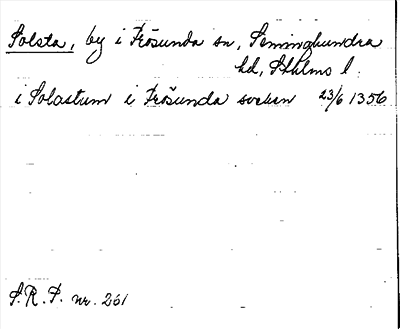 Solsta, by i Frösunda sn, Seminghundra
hd, Sthlms l.
i Solastum i Frösunda sokn 23/6 1356
S.R.P. nr. 261